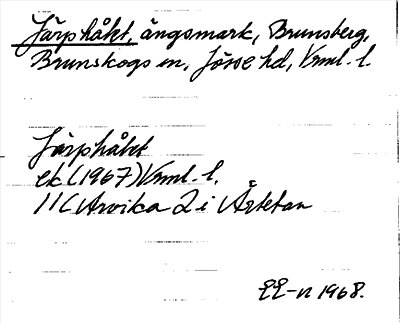 Järphåket, ängsmark, Brunsberg,
Brunskogs sn, Jösse hd, Vrml. l.
Järphåket
ek (1967) Vrml. l.
11C Arvika 2 i Årtetan
EE-n 1968.